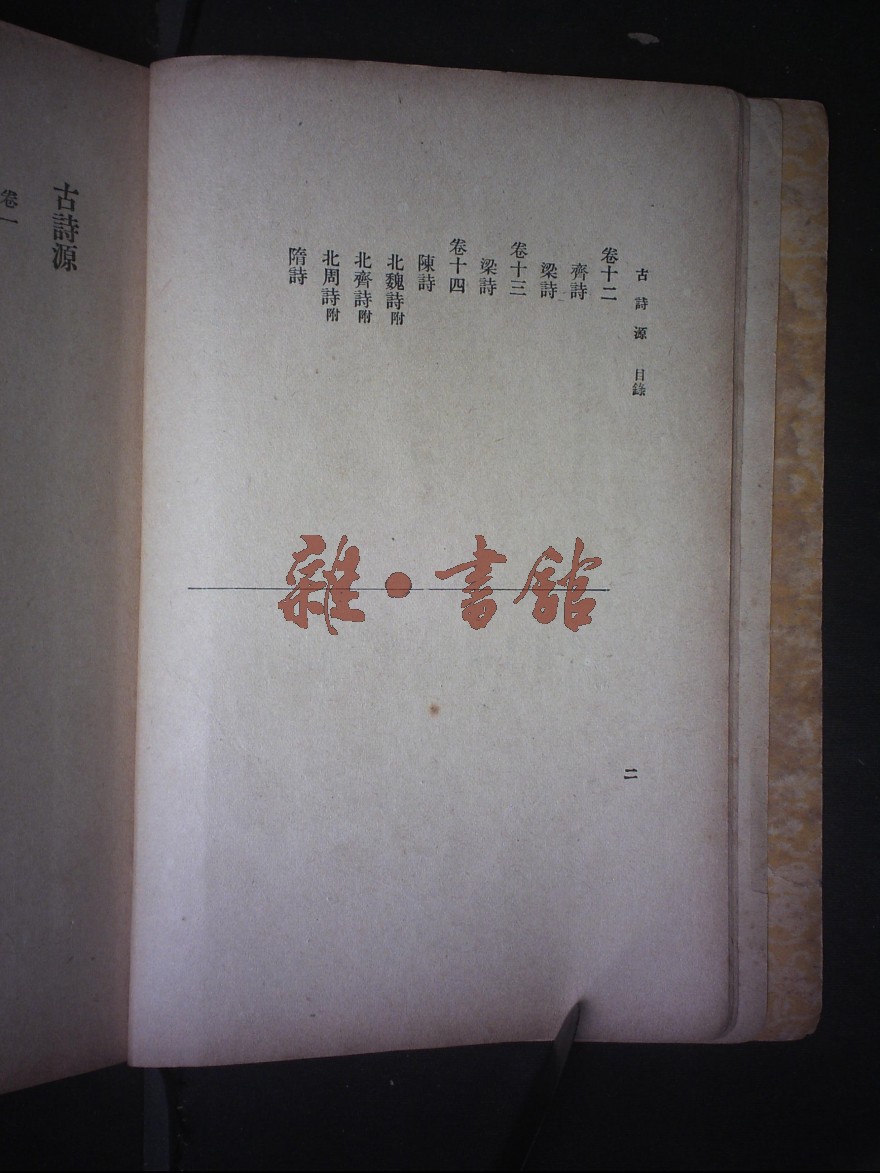 古詩源 目錄
卷十二
齊詩
梁詩
卷十三
梁詩
卷十四
陳詩
北魏詩附
北齊詩附
北周詩附
隋詩
二
雜•書館
古詩源
卷一